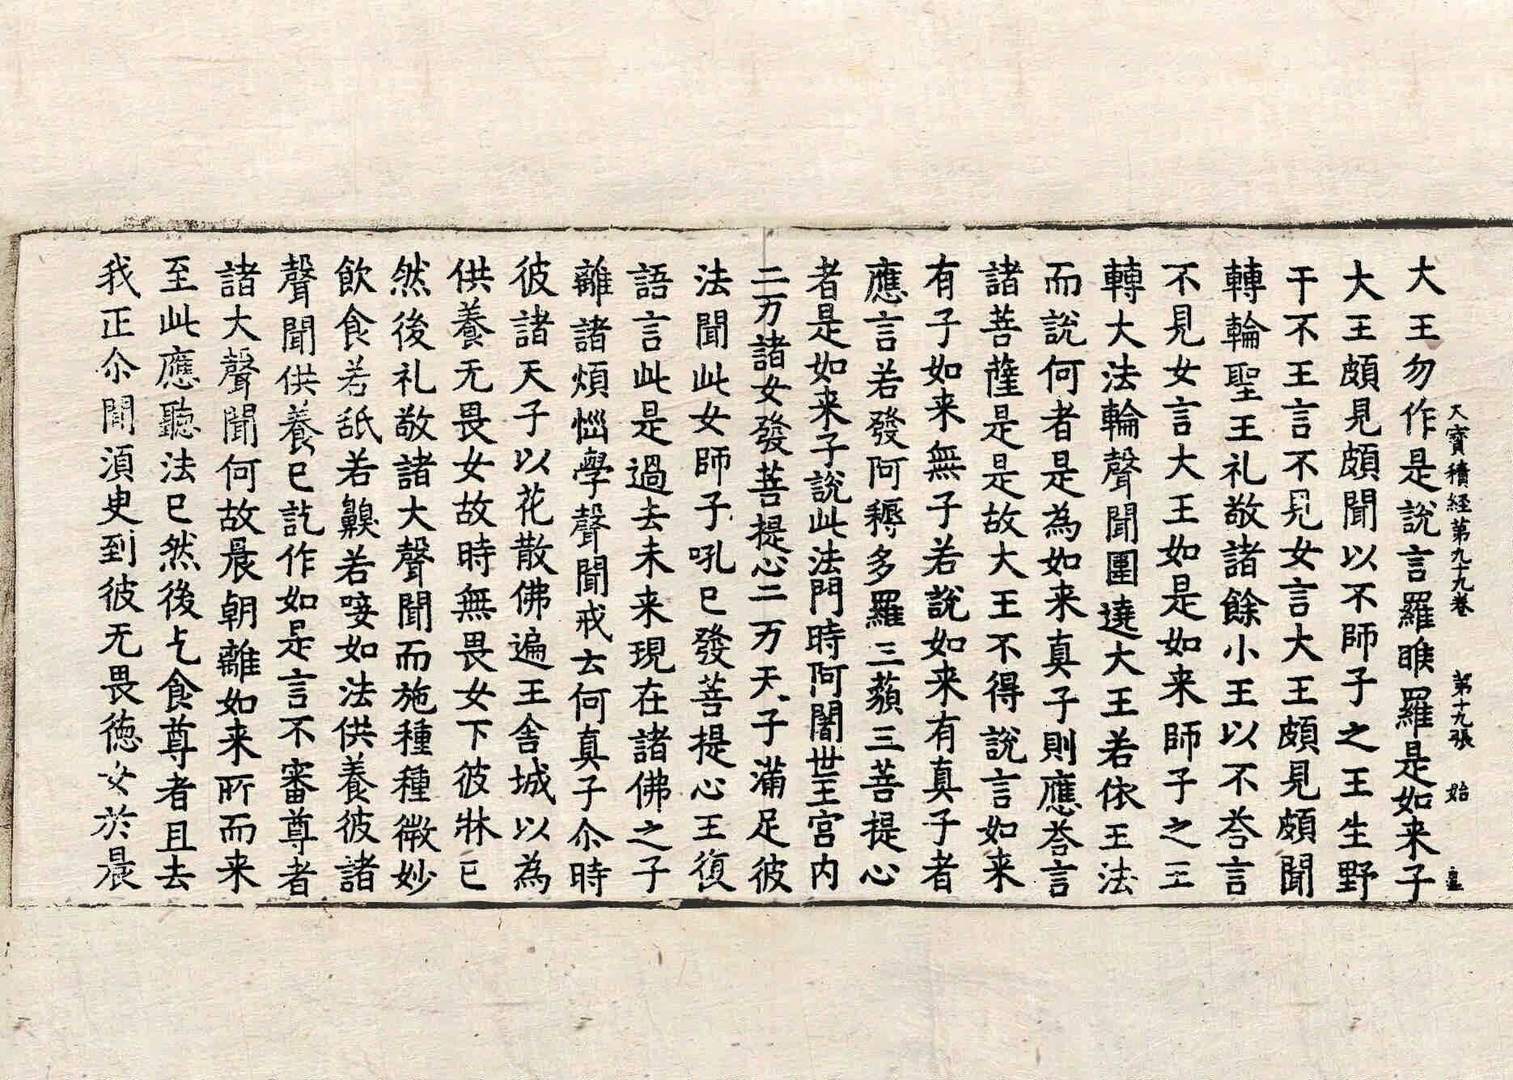 大寶積經第九十九卷 第十九張 始
大王勿作是說言羅睺羅是如来子
大王頗見頗聞以不師子之王生野
干不王言不見女言大王頗見頗聞
轉輪聖王礼敬諸餘小王以不荅言
不見女言大王如是如来師子之王
轉大法輪聲聞圍遶大王若依王法
而說何者是為如来真子則應荅言
諸菩薩是是故大王不得說言如来
有子如来無子若說如来有真子者
應言若發阿耨多羅三藐三菩提心
者是如来子說此法門時阿闍世王宮内
二万諸女發菩提心二万天子滿足彼
法聞此女師子吼已發菩提心王復
語言此是過去未来現在諸佛之子
離諸煩惱學聲聞戒云何真子尒時
彼諸天子以花散佛遍王舍城以為
供養无畏女故時無畏女下彼牀已
然後礼敬諸大聲聞而施種種微妙
飲食若舐若齅若唼如法供養彼諸
聲聞供養已訖作如是言不審尊者
諸大聲聞何故晨朝離如来所而来
至此應聽法已然後乞食尊者且去
我正尒間須臾到彼无畏徳女於晨